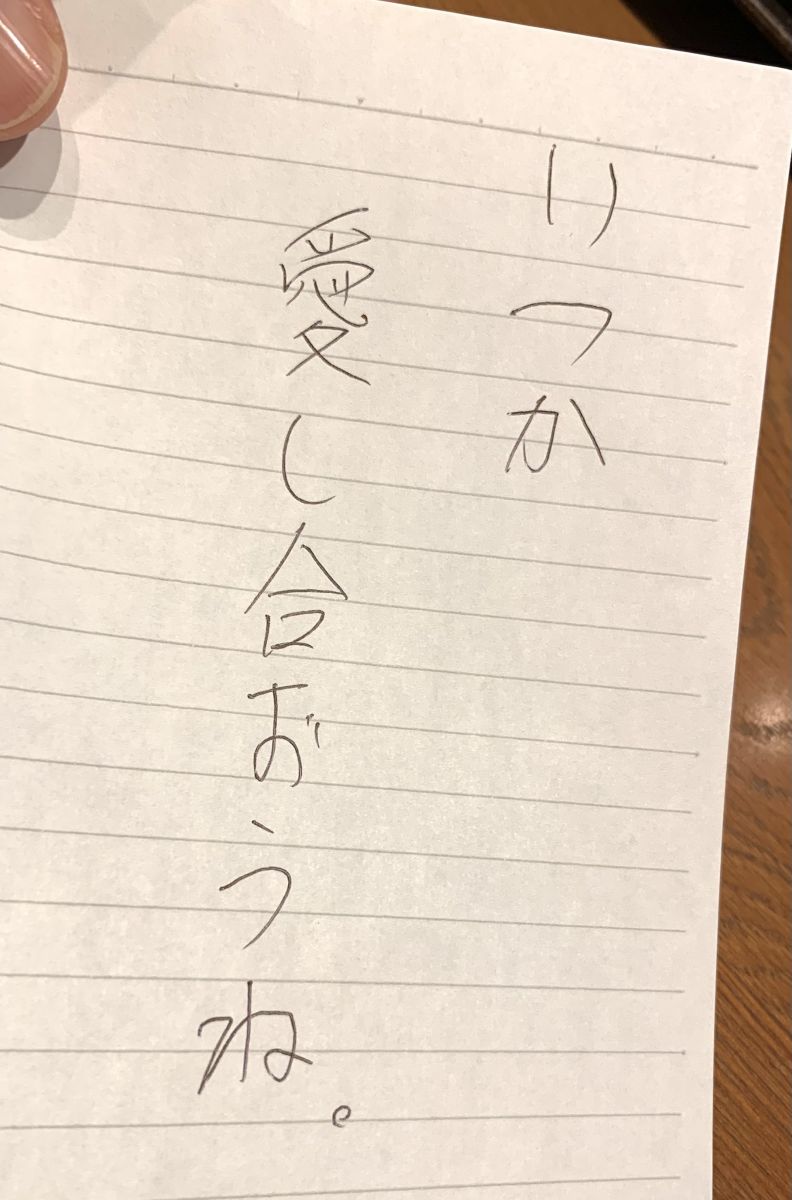 いつか
愛し合おうね。